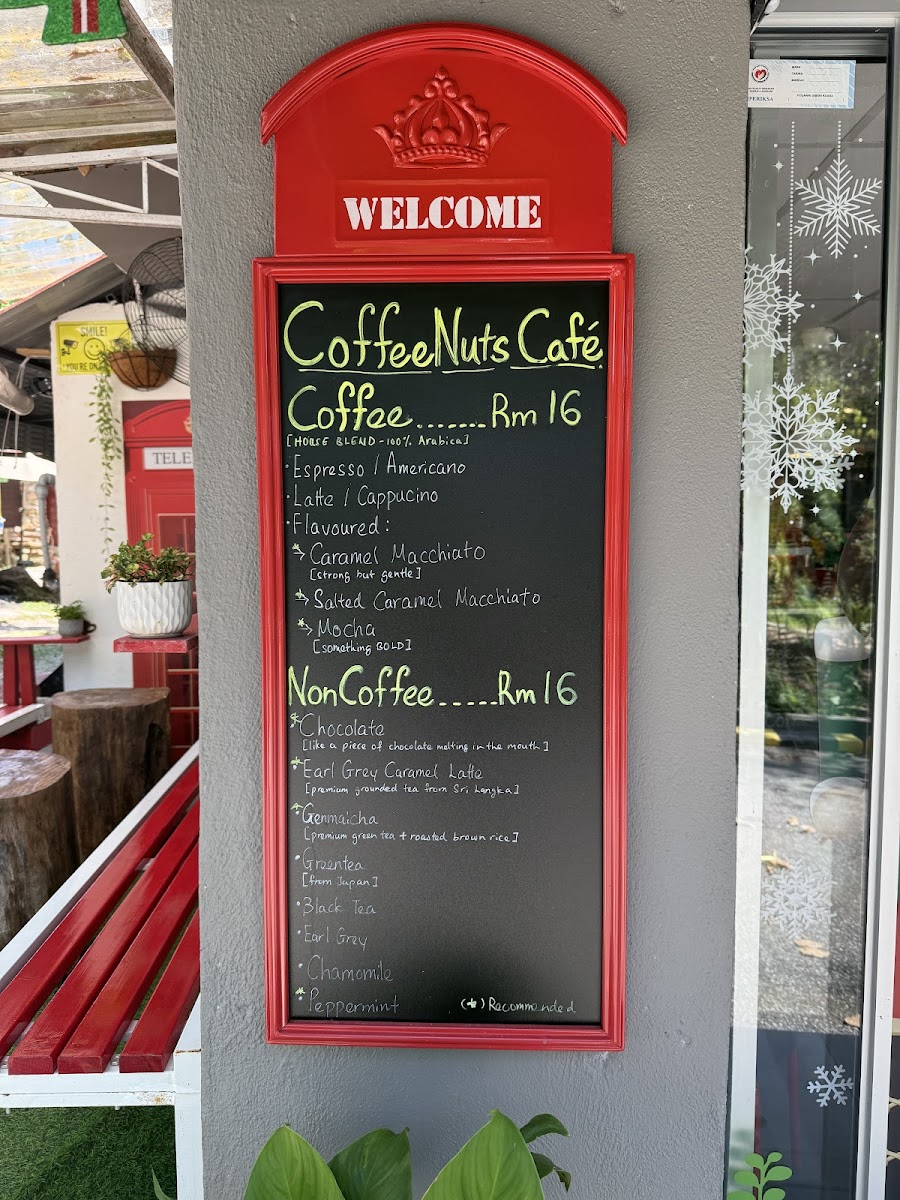 WELCOME
CoffeeNuts Café
Coffee.......Rm 16
[HOUSE BLEND - 100% Arabica]
· Espresso / Americano
· Latte / Cappucino
· Flavoured :
* → Caramel Macchiato
[strong but gentle]
* → Salted Caramel Macchiato
* → Mocha
[something BOLD]
NonCoffee.....Rm 16
* · Chocolate
[like a piece of chocolate melting in the mouth]
* · Earl Grey Caramel Latte
[premium grounded tea from Sri Langka]
* · Genmaicha
[premium green tea + roasted brown rice]
· Greentea
[from Japan]
· Black Tea
· Earl Grey
· Chamomile
* · Peppermint
(*) Recommended
SMILE!
YOU'RE ON
TELE
PERIKSA